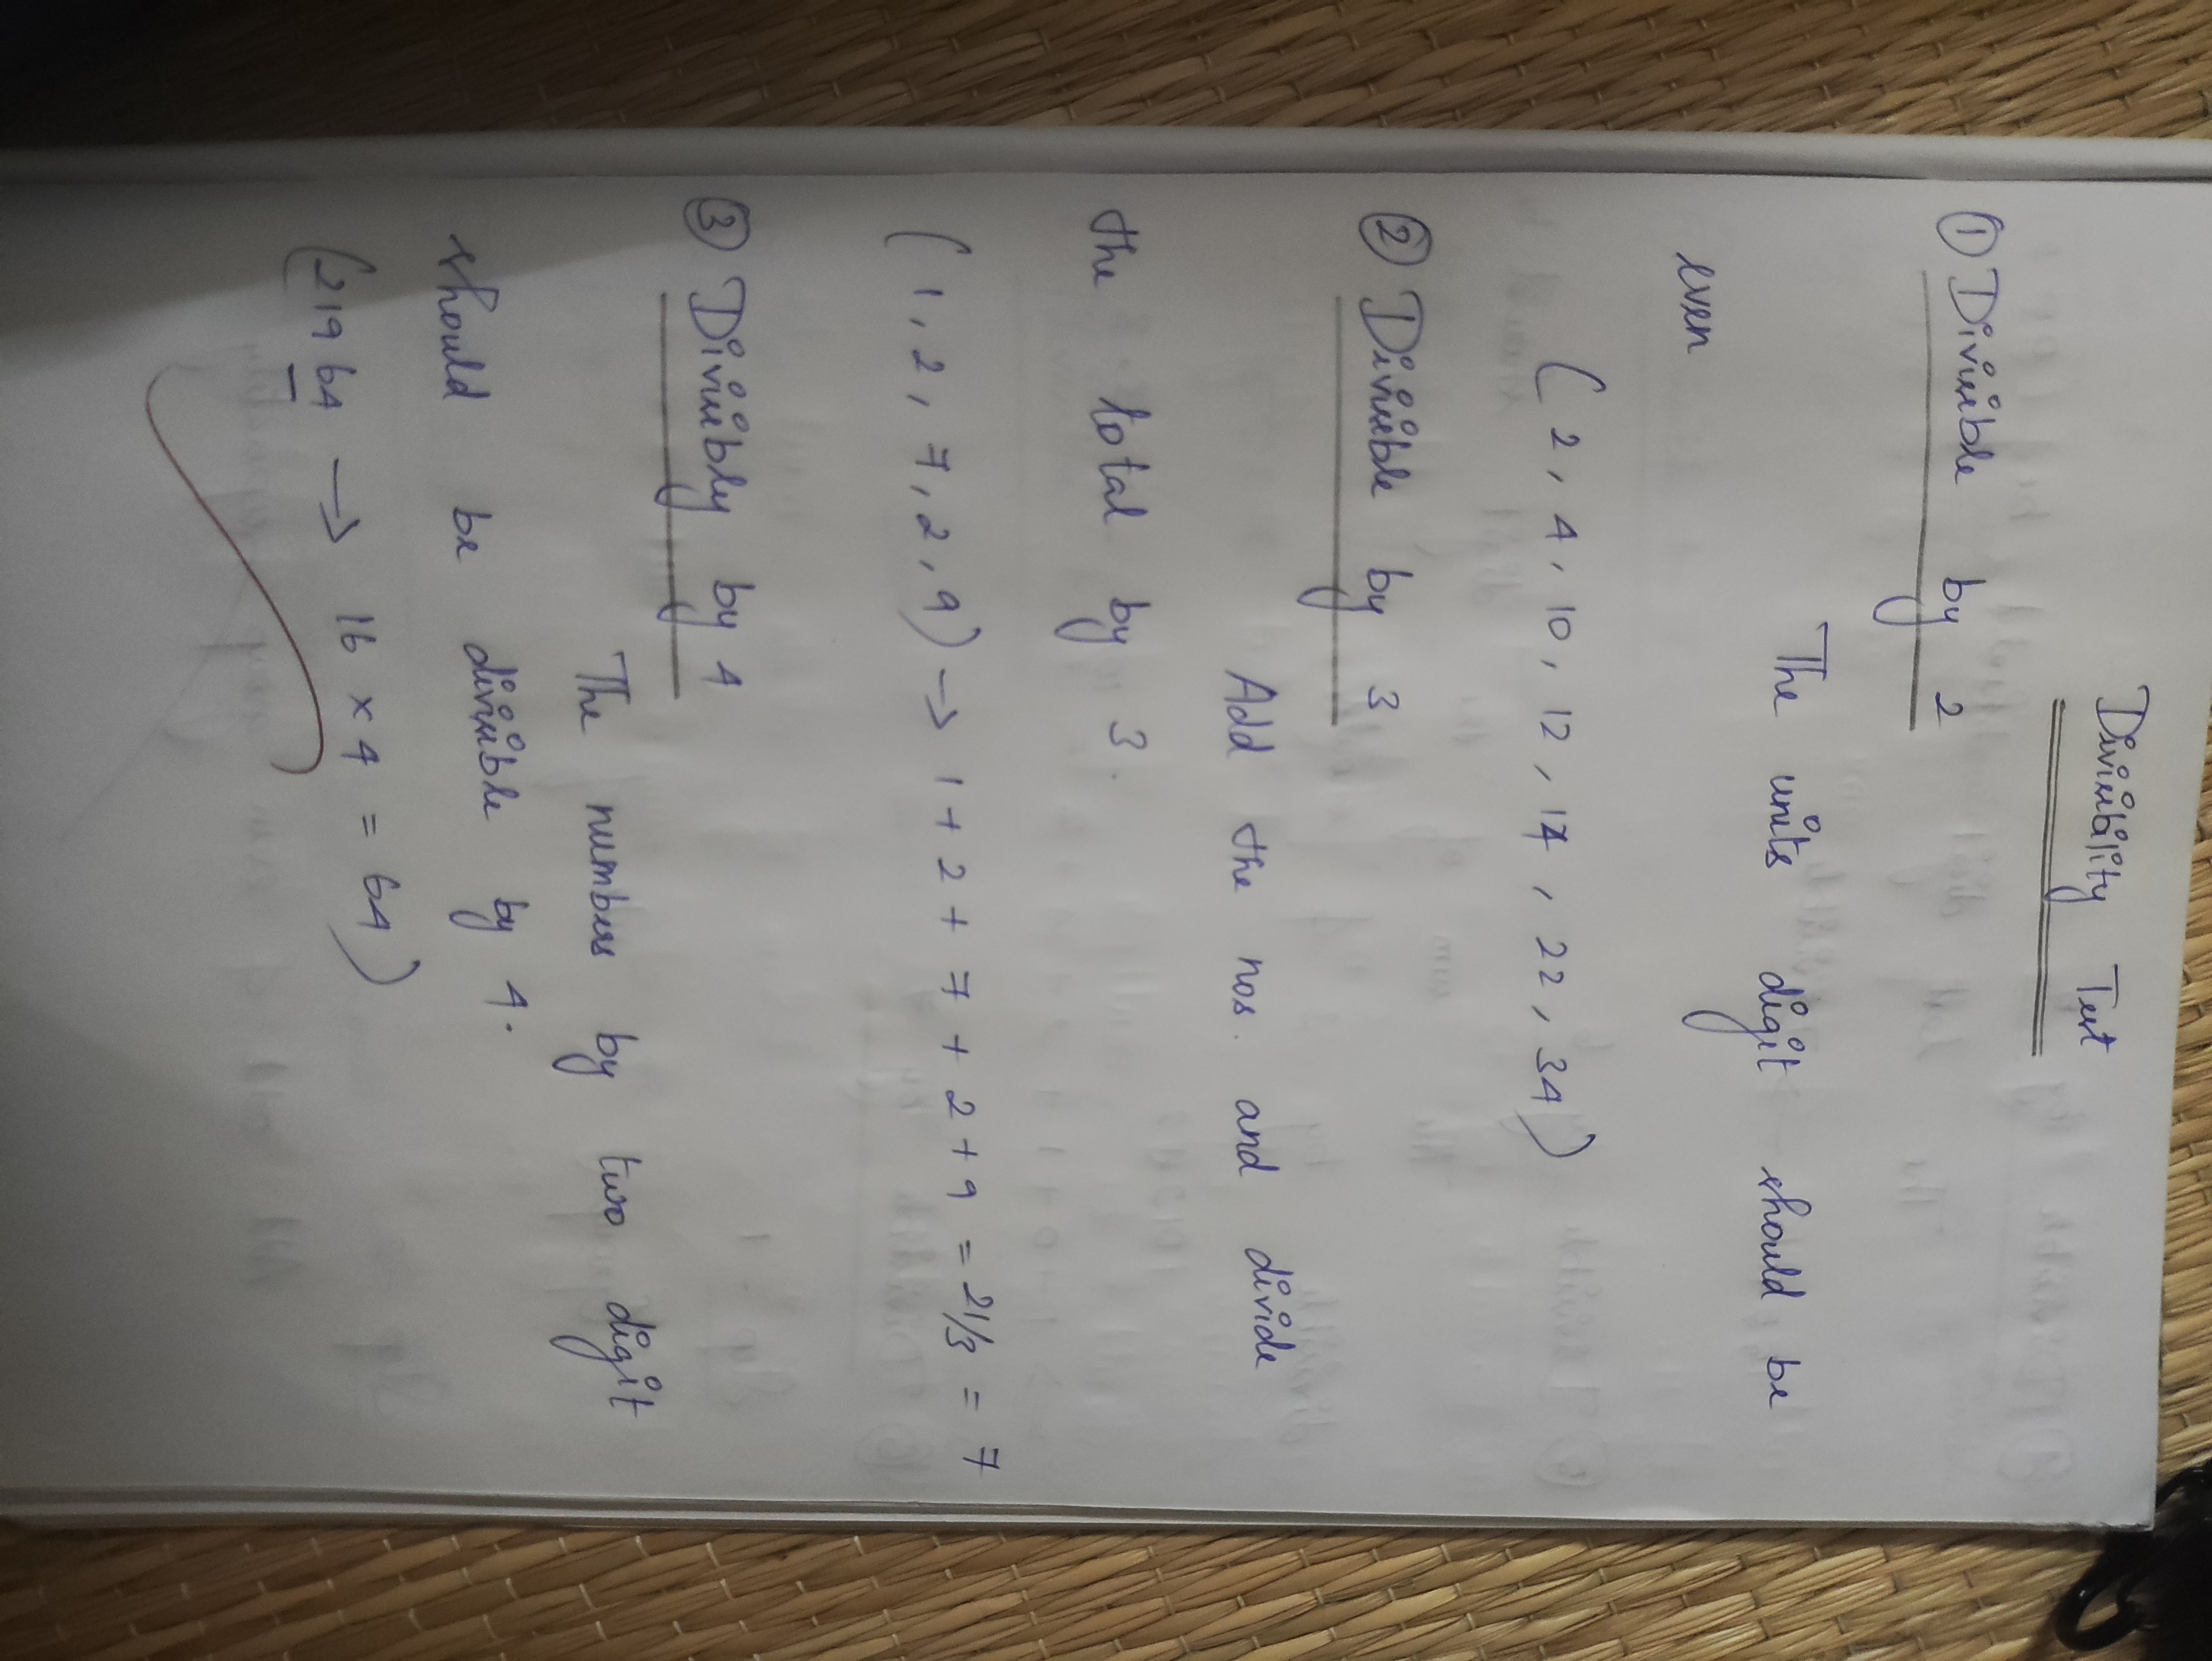 Divisibility Test
① Divisible by 2
The units digit should be
even
(2, 4, 10, 12, 14, 22, 34)
② Divisible by 3
Add the nos. and divide
the total by 3.
(1, 2, 7, 2, 9) → 1 + 2 + 7 + 2 + 9 = 21/3 = 7
③ Divisibly by 4
The numbers by two digit
should be divisible by 4.
(21964 → 16 × 4 = 64)